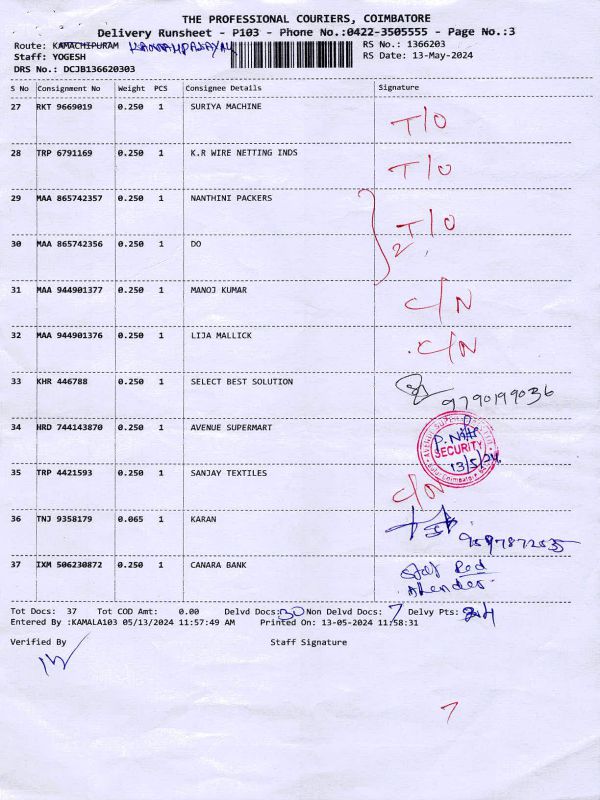 THE PROFESSIONAL COURIERS, COIMBATORE
Delivery Runsheet - P103 - Phone No.:0422-3505555 - Page No.:3
Route: KAMACHIPURAM
RS No.: 1366203
Staff: YOGESH
RS Date: 13-May-2024
DRS No.: DCJB136620303
S No Consignment No Weight PCS Consignee Details Signature
27 RKT 9669019 0.250 1 SURIYA MACHINE T/O
28 TRP 6791169 0.250 1 K.R WIRE NETTING INDS T/O
29 MAA 865742357 0.250 1 NANTHINI PACKERS T/O
30 MAA 865742356 0.250 1 DO 2
31 MAA 944901377 0.250 1 MANOJ KUMAR C/N
32 MAA 944901376 0.250 1 LIJA MALLICK C/N
33 KHR 446788 0.250 1 SELECT BEST SOLUTION 9790199036
34 HRD 744143870 0.250 1 AVENUE SUPERMART SECURITY 13/5/24
35 TRP 4421593 0.250 1 SANJAY TEXTILES C/N
36 TNJ 9358179 0.065 1 KARAN
37 IXM 506230872 0.250 1 CANARA BANK
Tot Docs: 37 Tot COD Amt: 0.00 Delvd Docs: 30 Non Delvd Docs: 7 Delvy Pts: 24
Entered By :KAMALA103 05/13/2024 11:57:49 AM Printed On: 13-05-2024 11:58:31
Verified By Staff Signature
7